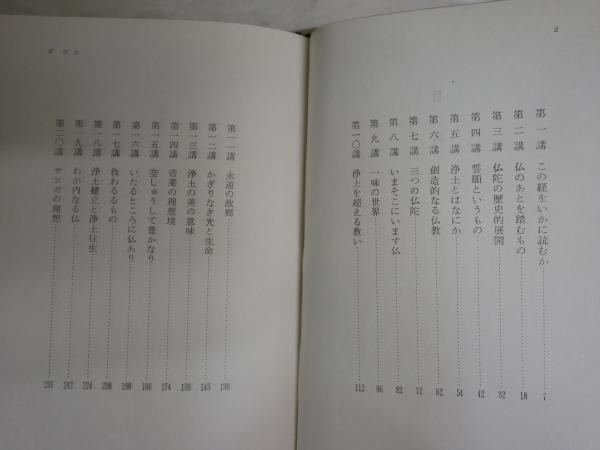 2
目次
第一講 この経をいかに読むか 7
第二講 仏のあとを踏むもの 18
第三講 仏陀の歴史的展開 32
第四講 誓願というもの 42
第五講 浄土とはなにか 54
第六講 創造的なる仏教 62
第七講 三つの仏陀 72
第八講 いまそこにいます仏 82
第九講 一味の世界 96
第一〇講 浄土を超える救い 112
3 目次
第一一講 永遠の故郷 130
第一二講 かぎりなき光と生命 145
第一三講 浄土の美の意味 159
第一四講 音楽の理想境 174
第一五講 空しゅうして豊かなり 186
第一六講 いたるところに仏あり 198
第一七講 救わるるもの 208
第一八講 浄土建立と浄土往生 224
第一九講 わが内なる仏 242
第二〇講 サンガの理想 257